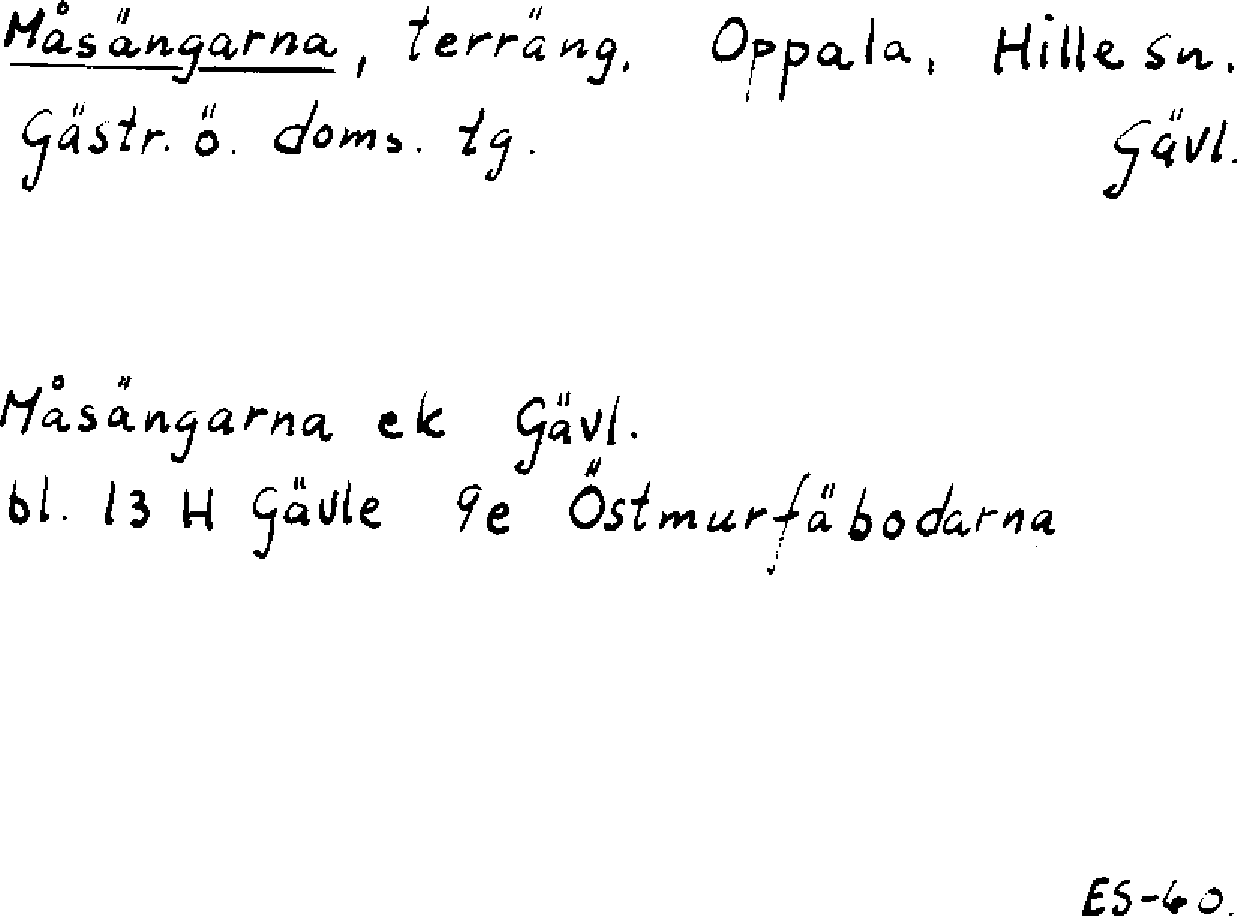 Måsängarna, terräng, Oppala, Hille sn.
Gästr. ö. doms. tg. Gävl.
Måsängarna ek Gävl.
bl. 13 H Gävle 9e Östmurfäbodarna
ES-60.